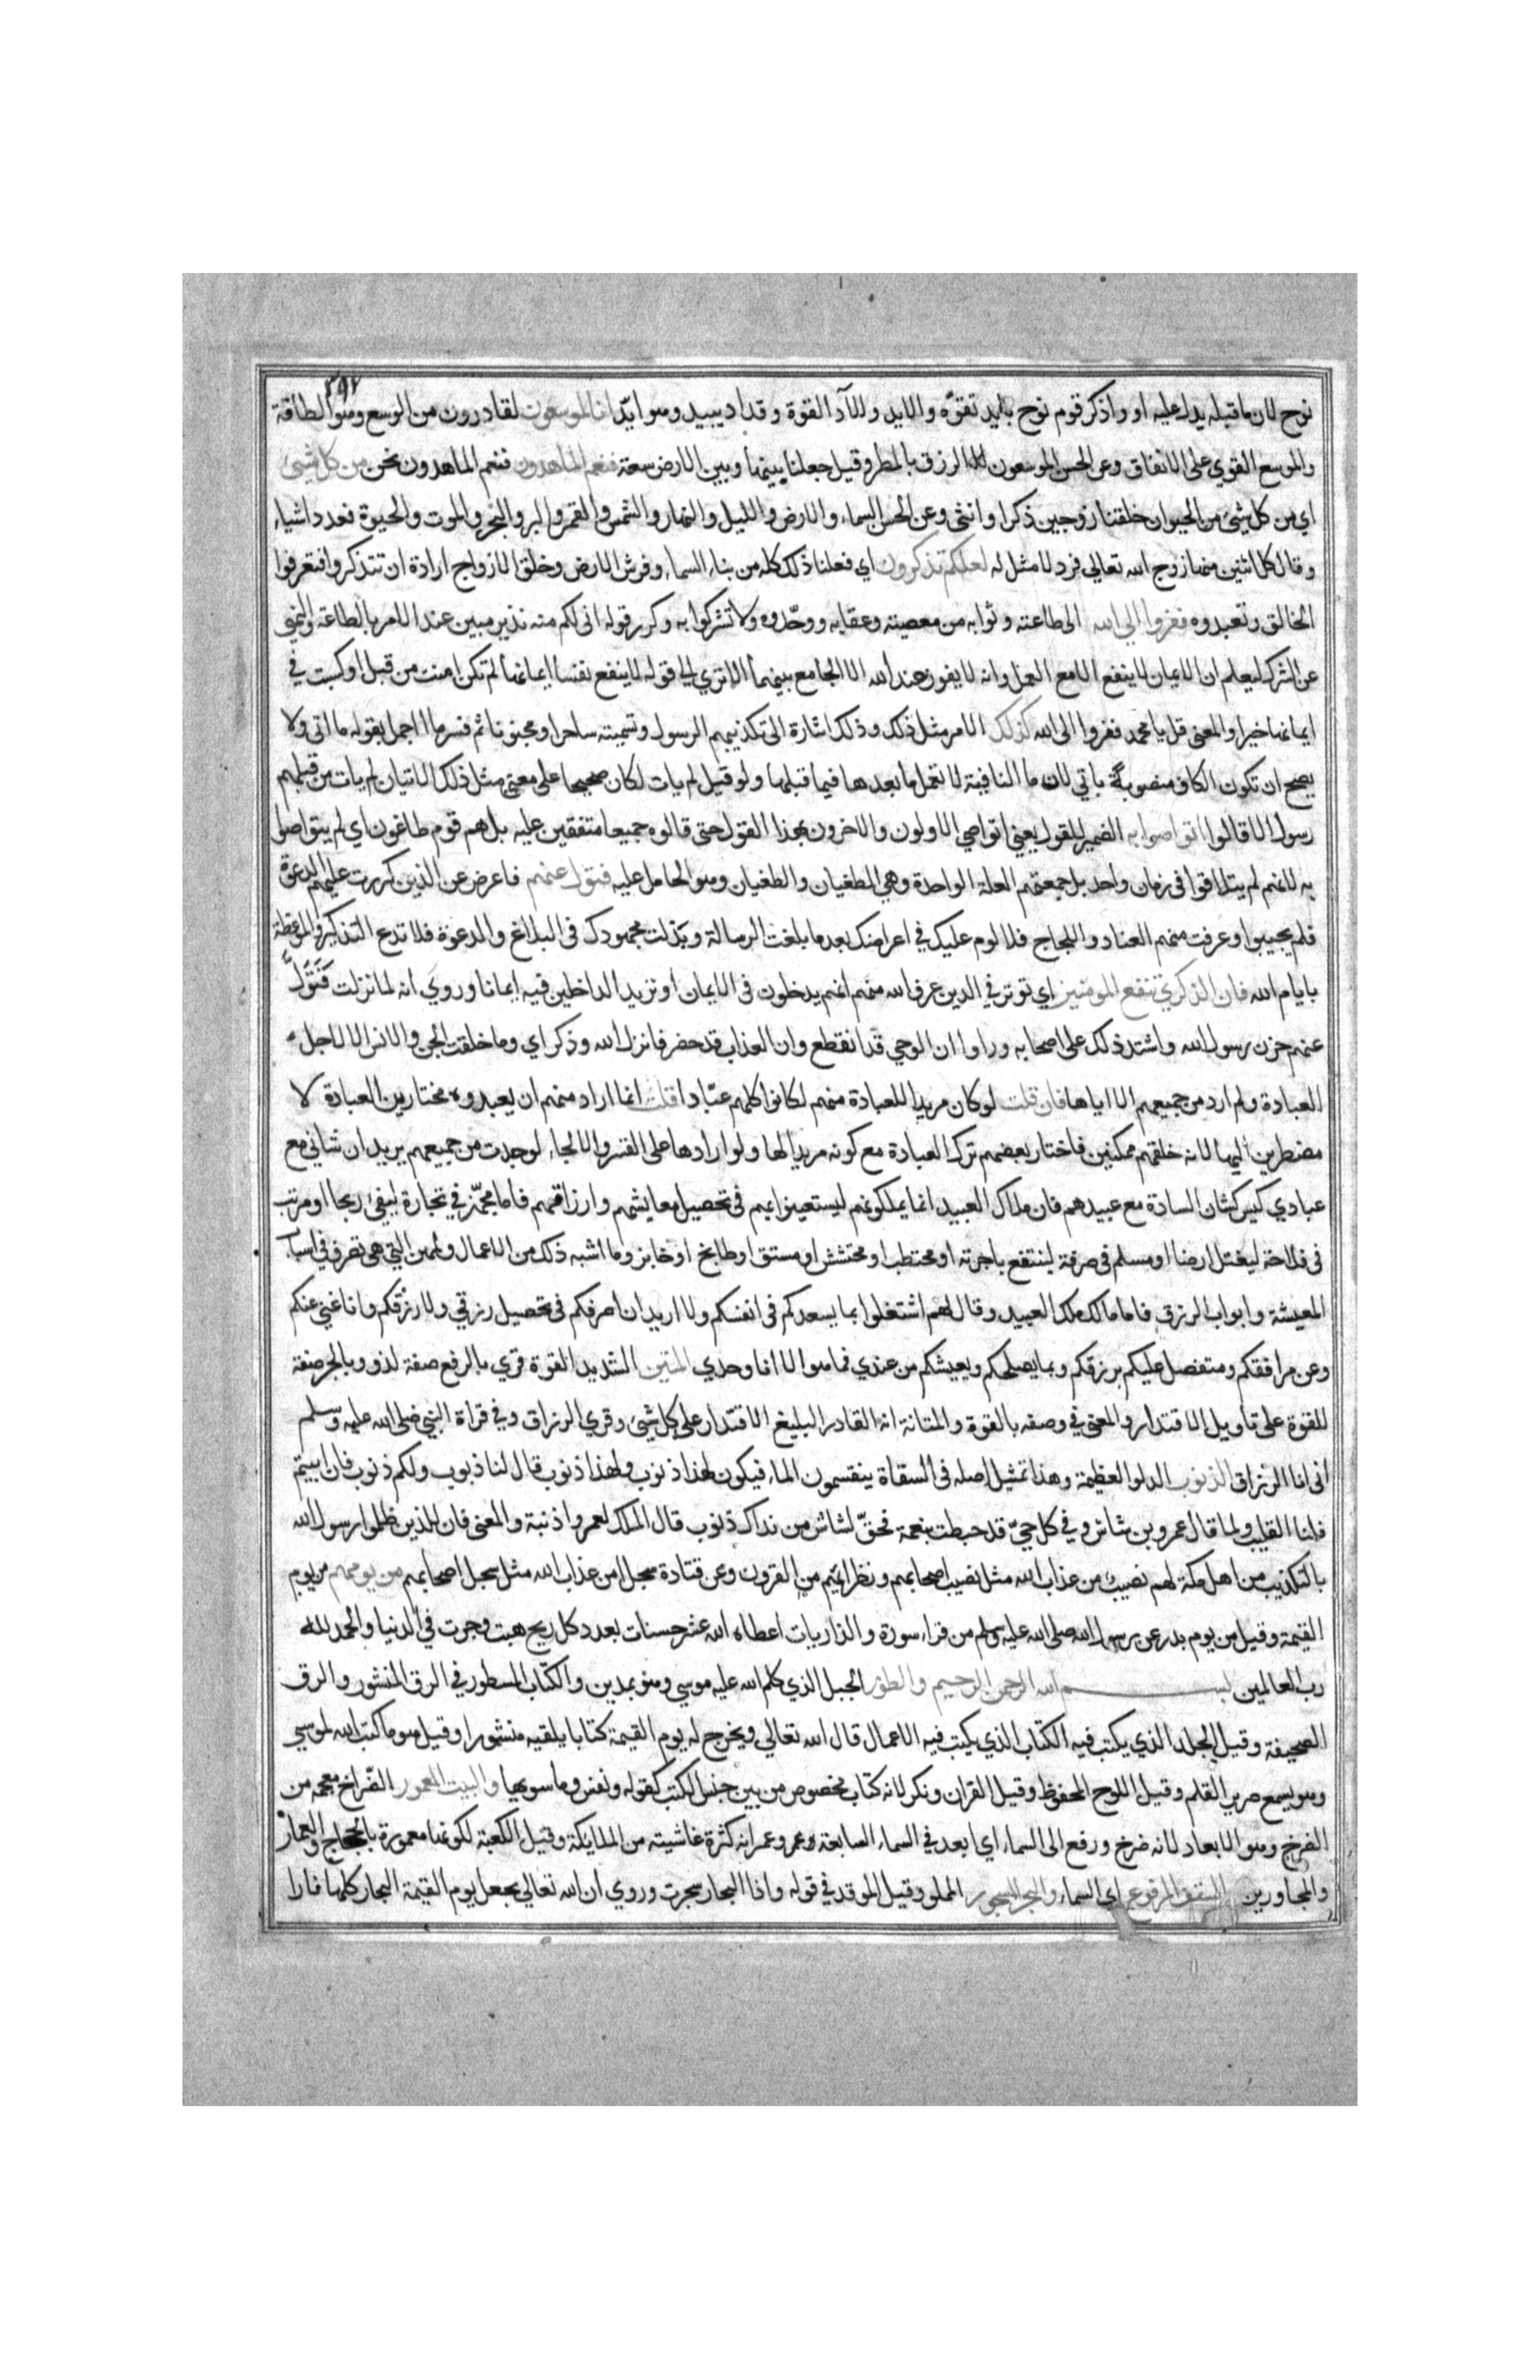 ٣٩٧
نوح لان ما قبله يدل عليه او واذكر قوم نوح بايد تقوّه والايد والآد القوة وقد اد يييد وهو ايّد انا لموسعون لقادرون من الوسع وهو الطاقة
والموسع القوي على الانفاق وعن الحسن لموسعون الرزق بالمطر وقيل جعلنا بينها وبين الارض سعة فنعم الماهدون فنعم الماهدون نحن من كل شيئ
اي من كل شيئ من الحيوان خلقنا زوجين ذكرا وانثى وعن الحسن السماء والارض والليل والنهار والشمس والقمر والبر والبحر والموت والحيوة فعدد اشياء
وقال كل اثنين منها زوج الله تعالي فرد لا مثل له لعلكم تذكرون اي فعلنا ذلك كله من بناء السماء وفرش الارض وخلق الازواج ارادة ان تتذكروا فتعرفوا
الخالق وتعبدوه ففروا الي الله الى طاعته وثوابه من معصيته وعقابه ووحّدوه ولا تشركوا به وكرر قوله انى لكم منه نذير مبين عند الامر بالطاعة والنهي
عن الشرك ليعلم ان الايمان لا ينفع الا مع العمل وانه لا يفوز عند الله الا الجامع بينهما الا تري الى قوله لا ينفع نفسا ايمانها لم تكن امنت من قبل او كسبت في
ايمانها خيرا والمعنى قل يا محمد ففروا الى الله كذلك الامر مثل ذلك وذلك اشارة الى تكذيبهم الرسول وتسميته ساحرا ومجنونا ثم فسر ما اجمل بقوله ما اتى ولا
يصح ان تكون الكاف منصوبة باتي لان ما النافية لا تعمل ما بعدها فيما قبلها ولو قيل لم يات لكان صحيحا على معنى مثل ذلك الاتيان لم يات من قبلهم
رسول الا قالوا اتواصوا به الضمير للقول يعني اتواصي الاولون والاخرون بهذا القول حتى قالوه جميعا متفقين عليه بل هم قوم طاغون اي لم يتواصوا
به لانهم لم يتلاقوا في زمان واحد بل جمعتهم العلة الواحدة وهي الطغيان والطغيان وهو الحامل عليه فتول عنهم فاعرض عن الذين كررت عليهم الدعوة
فلم يجيبوا وعرفت منهم العناد واللجاج فلا لوم عليك في اعراضك بعد ما بلغت الرسالة وبذلت مجهودك فى البلاغ والدعوة فلا تدع التذكير والموعظة
بايام الله فان الذكري تنفع المومنين اي توثر في الذين عرف الله منهم انهم يدخلون فى الايمان او تزيد الداخلين فيه ايمانا وروي انه لما نزلت فَتَوَلَّ
عنهم حزن رسول الله واشتد ذلك على اصحابه وراوا ان الوحي قد انقطع وان العذاب قد حضر فانزل الله وذكر اي وما خلقت الجن والانس الا لاجل
العبادة ولم ارد من جميعهم الا اياها فان قلت لو كان مريدا للعبادة منهم لكانوا كلهم عبّادا قلت انما اراد منهم ان يعبدوه مختارين العبادة لا
مضطرين اليها لانه خلقهم ممكنين فاختار بعضهم ترك العبادة مع كونه مريدا لها ولو ارادها على القسر والالجاء لوجدت من جميعهم يريد ان شاني مع
عبادي ليس كشان السادة مع عبيدهم فان ملاك العبيد انما يملكونهم ليستعينوا بهم فى تحصيل معايشهم وارزاقهم فاما مجهّز في تجارة ليفي ربحا او مرتب
فى فلاحة ليغتل ارضا او مسلم فى حرفة لينتفع باجرته او محتطب او محتشش او مستق او طابخ او خابز وما اشبه ذلك من الاعمال والمهن التي هى تصرف في اسباب
المعيشة وابواب الرزق فاما مالك ملك العبيد وقال لهم اشتغلوا بما يسعدكم فى انفسكم ولا اريد ان اصرفكم فى تحصيل رزقي ولا رزقكم وانا غني عنكم
وعن مرافقكم ومتفضل عليكم برزقكم وبما يصلحكم ويعيشكم من عندي فما هو الا انا وحدي المتين الشديد القوة قري بالرفع صفة لذو وبالجر صفة
للقوة على تاويل الاقتدار والمعنى في وصفه بالقوة والمتانة انه القادر البليغ الاقتدار على كل شيئ وقري الرزاق وفي قراة النبي صلى الله عليه وسلم
انى انا الرزاق الذنوب الدلو العظيمة وهذا تمثيل اصله فى السقاة يتقسمون الماء فيكون لهذا ذنوب ولهذا ذنوب قال لنا ذنوب ولكم ذنوب فان ابيتم
فلنا القليب ولما قال عمرو بن شاش وفي كل حيّ قد خبطت بنعمة فحقّ لشاش من نداك ذنوب قال الملك لعمرو اذنبة والمعنى فان للذين ظلموا رسول الله
بالتكذيب من اهل مكة لهم نصيب من عذاب الله مثل نصيب اصحابهم ونظرائهم من القرون وعن قتادة سجلا من عذاب الله مثل سجل اصحابهم من يومهم من يوم
القيمة وقيل من يوم بدر عن رسول الله صلى الله عليه وسلم من قراء سورة والذاريات اعطاه الله عشر حسنات بعدد كل ريح هبت وجرت في الدنيا والحمد لله
رب العالمين بسم الله الرحمن الرحيم والطور الجبل الذي كلم الله عليه موسي وهو بمدين والكتاب المسطور في الرق المنشور والرق
الصحيفة وقيل الجلد الذي يكتب فيه الكتاب الذي يكتب فيه الاعمال قال الله تعالي ويخرج له يوم القيمة كتابا يلقيه منشورا وقيل هو ما كتب الله لموسي
وهو يسمع صرير القلم وقيل اللوح المحفوظ وقيل القران ونكر لانه كتاب مخصوص من بين جنس الكتب كقوله ونفس وما سويها والبيت المعمور الضّراخ معجمه من
الضرخ وهو الابعاد لانه ضرخ ورفع الى السماء اي ابعد في السماء السابعة وعمر وعمرانه كثرة غاشيته من الملايكة وقيل الكعبة لكونها معمورة بالحجاج والعمار
والمجاورين السقف المرفوع اي السماء والبحر المسجور المملو وقيل الموقد في قوله واذا البحار سجرت وروي ان الله تعالي يجعل يوم القيمة البحار كلها نارا